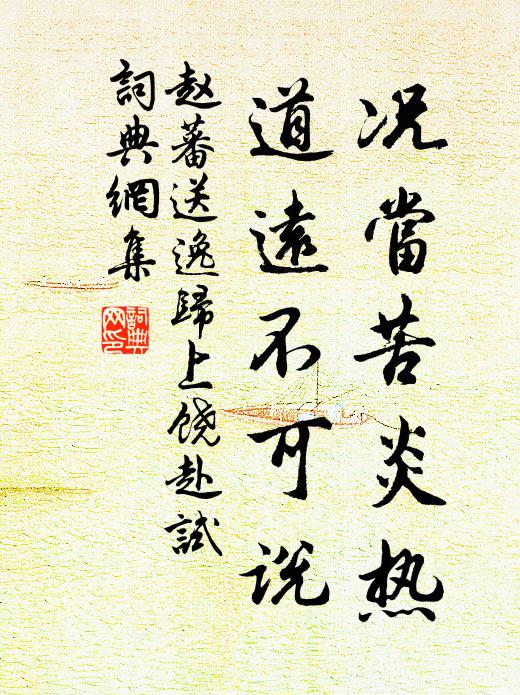 况當苦炎热
道遠不可说
赵蕃送逸歸上饶赴試
詞典網集
詞典网印